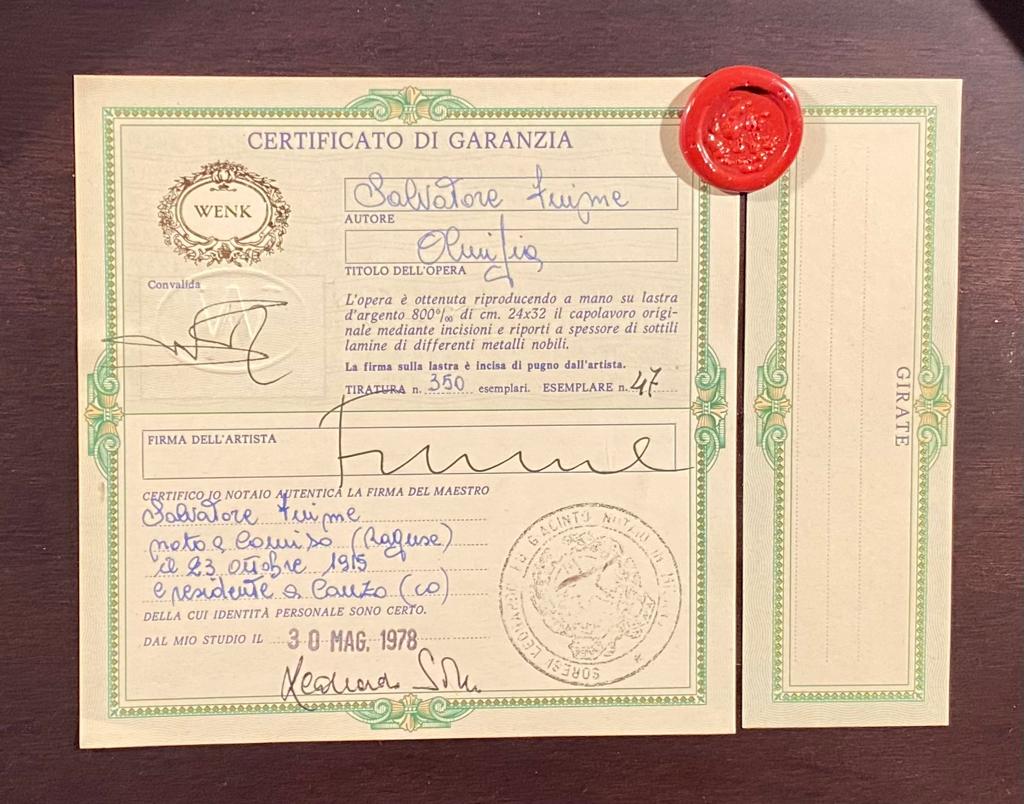 CERTIFICATO DI GARANZIA
WENK
Salvatore Fiume
AUTORE
TITOLO DELL'OPERA
Convalida
L'opera è ottenuta riproducendo a mano su lastra
d'argento 800°/₀₀ di cm. 24x32 il capolavoro origi-
nale mediante incisioni e riporti a spessore di sottili
lamine di differenti metalli nobili.
La firma sulla lastra è incisa di pugno dall'artista.
TIRATURA n. 350 esemplari. ESEMPLARE n. 47
FIRMA DELL'ARTISTA
Fiume
CERTIFICO IO NOTAIO AUTENTICA LA FIRMA DEL MAESTRO
Salvatore Fiume
nato a Comiso (Raguse)
il 23 ottobre 1915
e residente a Canzo (CO)
DELLA CUI IDENTITÀ PERSONALE SONO CERTO.
DAL MIO STUDIO IL 30 MAG. 1978
SORESI LEONARDO FU GIACINTO NOTAIO IN
GIRATE